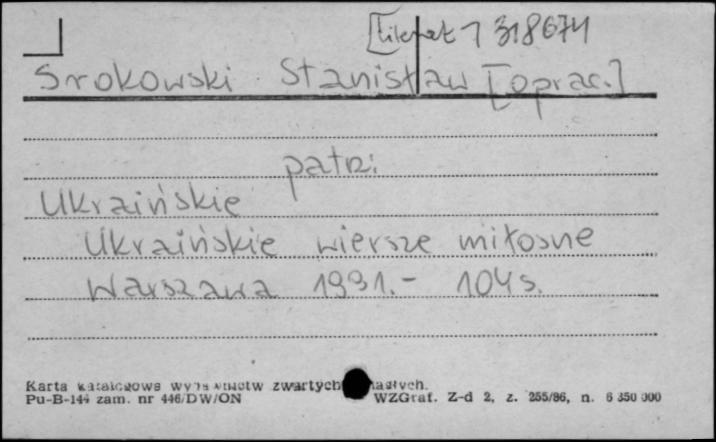 1 318674
Srokowski Stanisław [oprac.]
patrz:
Ukraińskie
Ukraińskie wiersze miłosne
Warszawa 1991.- 104 s.
Karta katalogowa wydawnictw zwartych
Pu-B-144 zam. nr 446/DW/ON WZGraf. Z-d 2, z. 255/86, n. 6 350 000